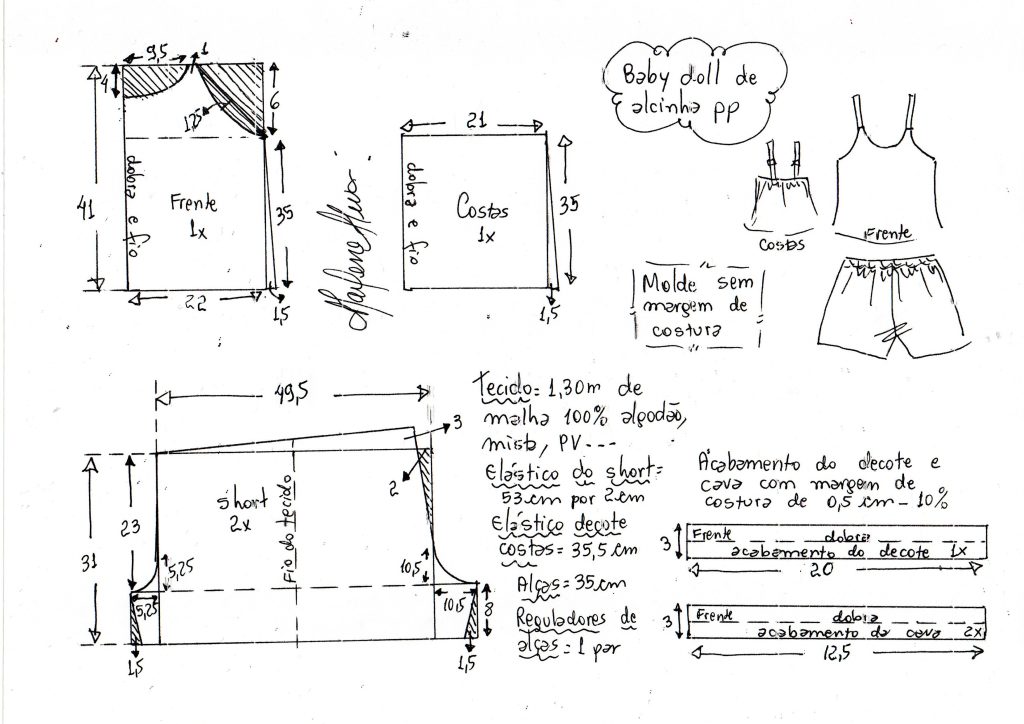 Baby doll de
alcinha PP
9,5
1
4
6
1,25
41
dobra e fio
Frente
1x
35
22
1,5
21
dobra e fio
Costas
1x
35
1,5
Costas
Frente
Molde sem
margem de
costura
49,5
3
2
31
23
short
2x
Fio do tecido
5,25
5,25
10,5
10,5
8
1,5
1,5
Tecido= 1,30m de
malha 100% algodão,
mista, PV---
Elástico do short=
53 cm por 2 cm
Elástico decote
costas= 35,5 cm
Alças= 35 cm
Reguladores de
alças= 1 par
Acabamento do decote e
cava com margem de
costura de 0,5 cm - 10%
3
Frente dobra
acabamento do decote 1x
20
3
Frente dobra
acabamento da cava 2x
12,5